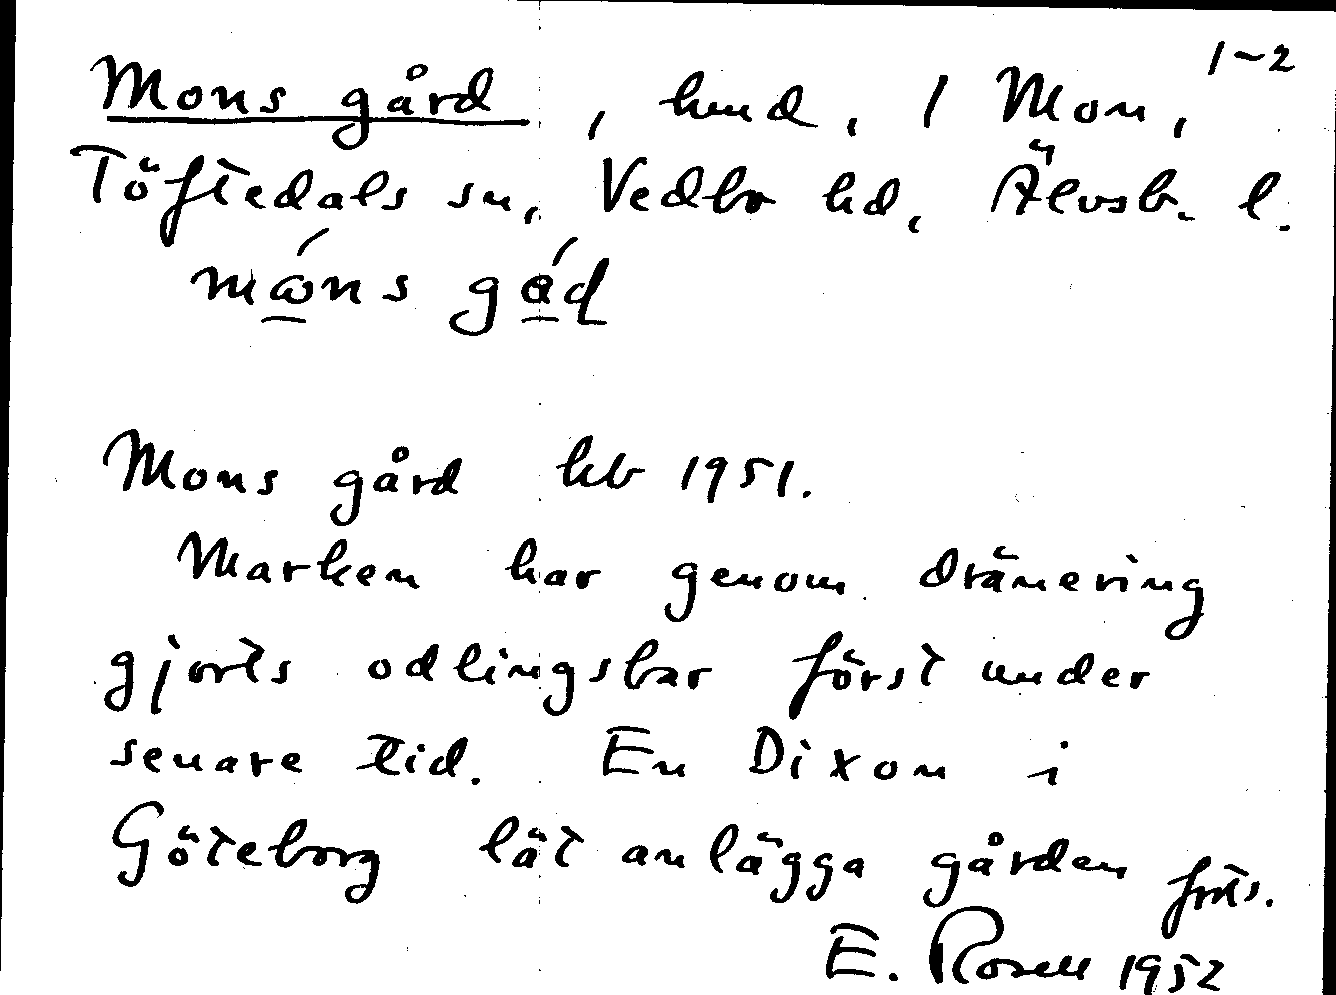 1–2
Mons gård, hmd, 1 Mon,
Töftedals sn, Vedbo hd, Älvsb. l.
Mons gård kb 1951.
Marken har genom dränering
gjorts odlingsbar först under
senare tid. En Dixon i
Göteborg lät anlägga gården
E. Rosell 1952